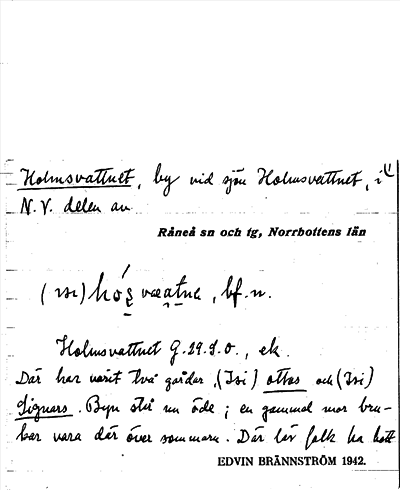 Holmsvattnet, by vid sjön Holmsvattnet, i
N.V. delen av
Råneå sn och tg, Norrbottens län
bf. n.
Holmsvattnet G.29.S.O., ek.
Där har varit två gårdar, (Isi) ottas och (Isi)
Signars. Byn står nu öde; en gammal mor bru-
kar vara där över sommarn. Där lär folk ha hatt
EDVIN BRÄNNSTRÖM 1942.